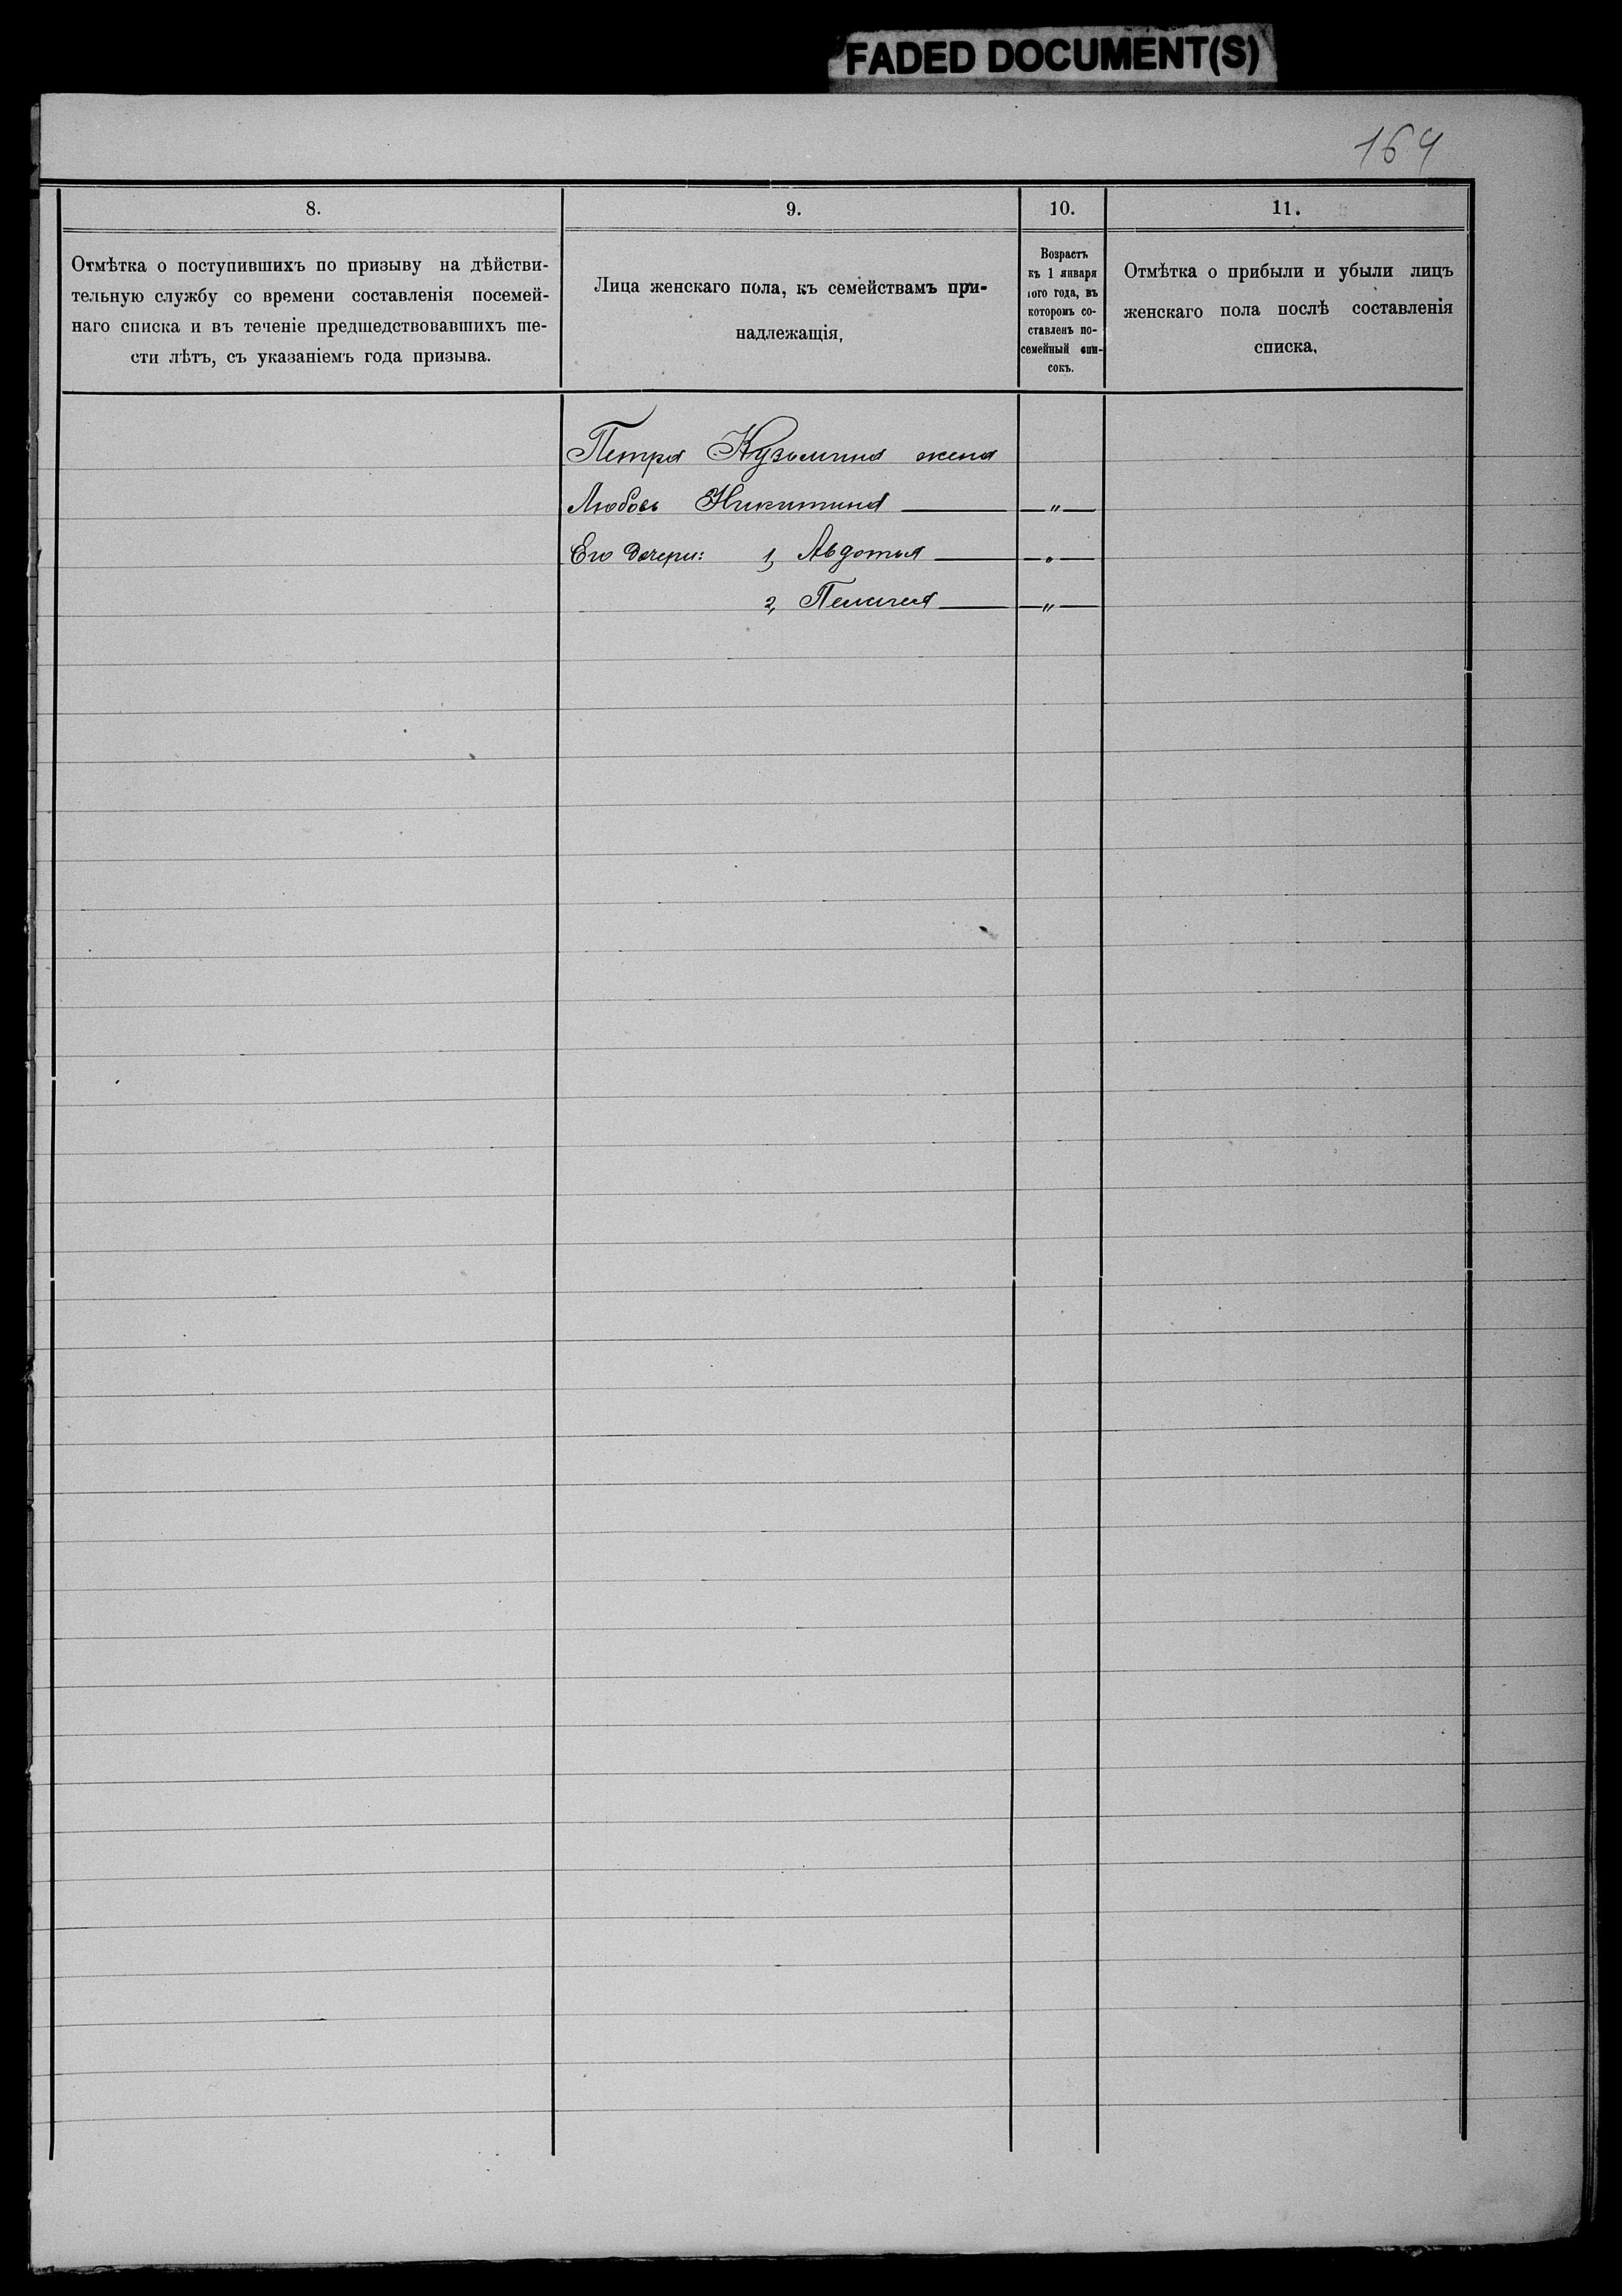 FADED DOCUMENT(S)
169
8.
9.
10.
11.
Отмѣтка о поступившихъ по призыву на дѣйстви-
тельную службу со времени составленія посемей-
наго списка и въ теченіе предшедствовавшихъ ше-
сти лѣтъ, съ указаніемъ года призыва.
Лица женскаго пола, къ семействамъ при-
надлежащія,
Возрастъ
къ 1 января
того года, въ
которомъ со-
ставленъ по-
семейный спи-
сокъ.
Отмѣтка о прибыли и убыли лицъ
женскаго пола послѣ составленія
списка,
Петра Кузьмина жена
Любовь Никитина — „ —
Его дочери: 1, Авдотья — „ —
2, Пелагея — „ —